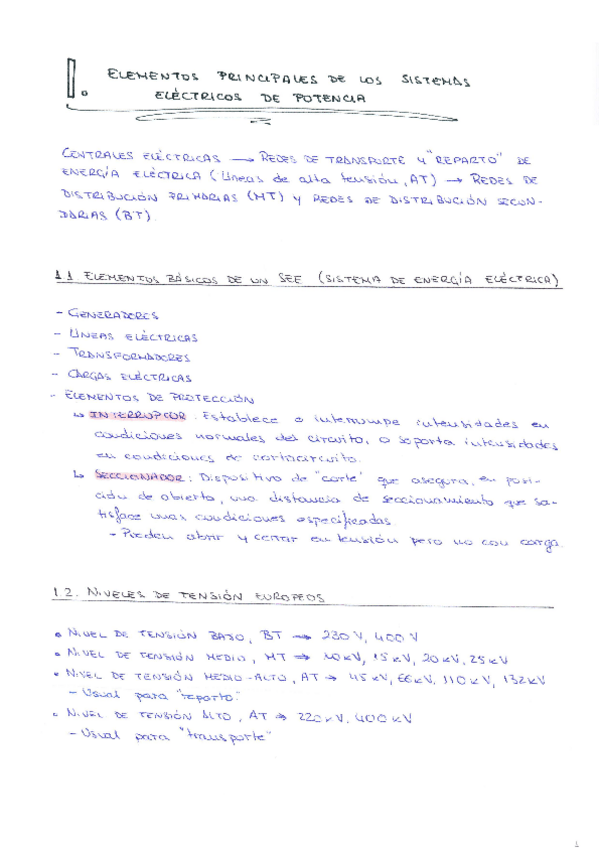 1. ELEMENTOS PRINCIPALES DE LOS SISTEMAS
ELÉCTRICOS DE POTENCIA
CENTRALES ELÉCTRICAS → REDES DE TRANSPORTE Y "REPARTO" DE
ENERGÍA ELÉCTRICA (Líneas de alta tensión, AT) → REDES DE
DISTRIBUCIÓN PRIMARIAS (MT) y REDES DE DISTRIBUCIÓN SECUN-
DARIAS (BT).
1.1 ELEMENTOS BÁSICOS DE UN SEE (SISTEMA DE ENERGÍA ELÉCTRICA)
- GENERADORES
- LÍNEAS ELÉCTRICAS
- TRANSFORMADORES
- CARGAS ELÉCTRICAS
- ELEMENTOS DE PROTECCIÓN
↳ INTERRUPTOR: Establece o interrumpe intensidades en
condiciones normales del circuito, o soporta intensidades
en condiciones de cortocircuito.
↳ SECCIONADOR: Dispositivo de "corte" que asegura, en posi-
ción de abierto, una distancia de seccionamiento que sa-
tisface unas condiciones especificadas.
- Pueden abrir y cerrar en tensión pero no con carga.
1.2. NIVELES DE TENSIÓN EUROPEOS
• NIVEL DE TENSIÓN BAJO, BT → 230 V, 400 V
• NIVEL DE TENSIÓN MEDIO, MT → 10 kV, 15 kV, 20 kV, 25 kV
• NIVEL DE TENSIÓN MEDIO-ALTO, AT → 45 kV, 66 kV, 110 kV, 132 kV
- Usual para "reparto."
• NIVEL DE TENSIÓN ALTO, AT → 220 kV, 400 kV
- Usual para "transporte"
1